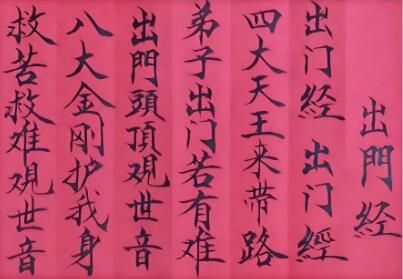 出門経
出门経 出门經
四大天王来带路
弟子出门若有难
出門頭頂观世音
八大金刚护我身
救苦救难观世音